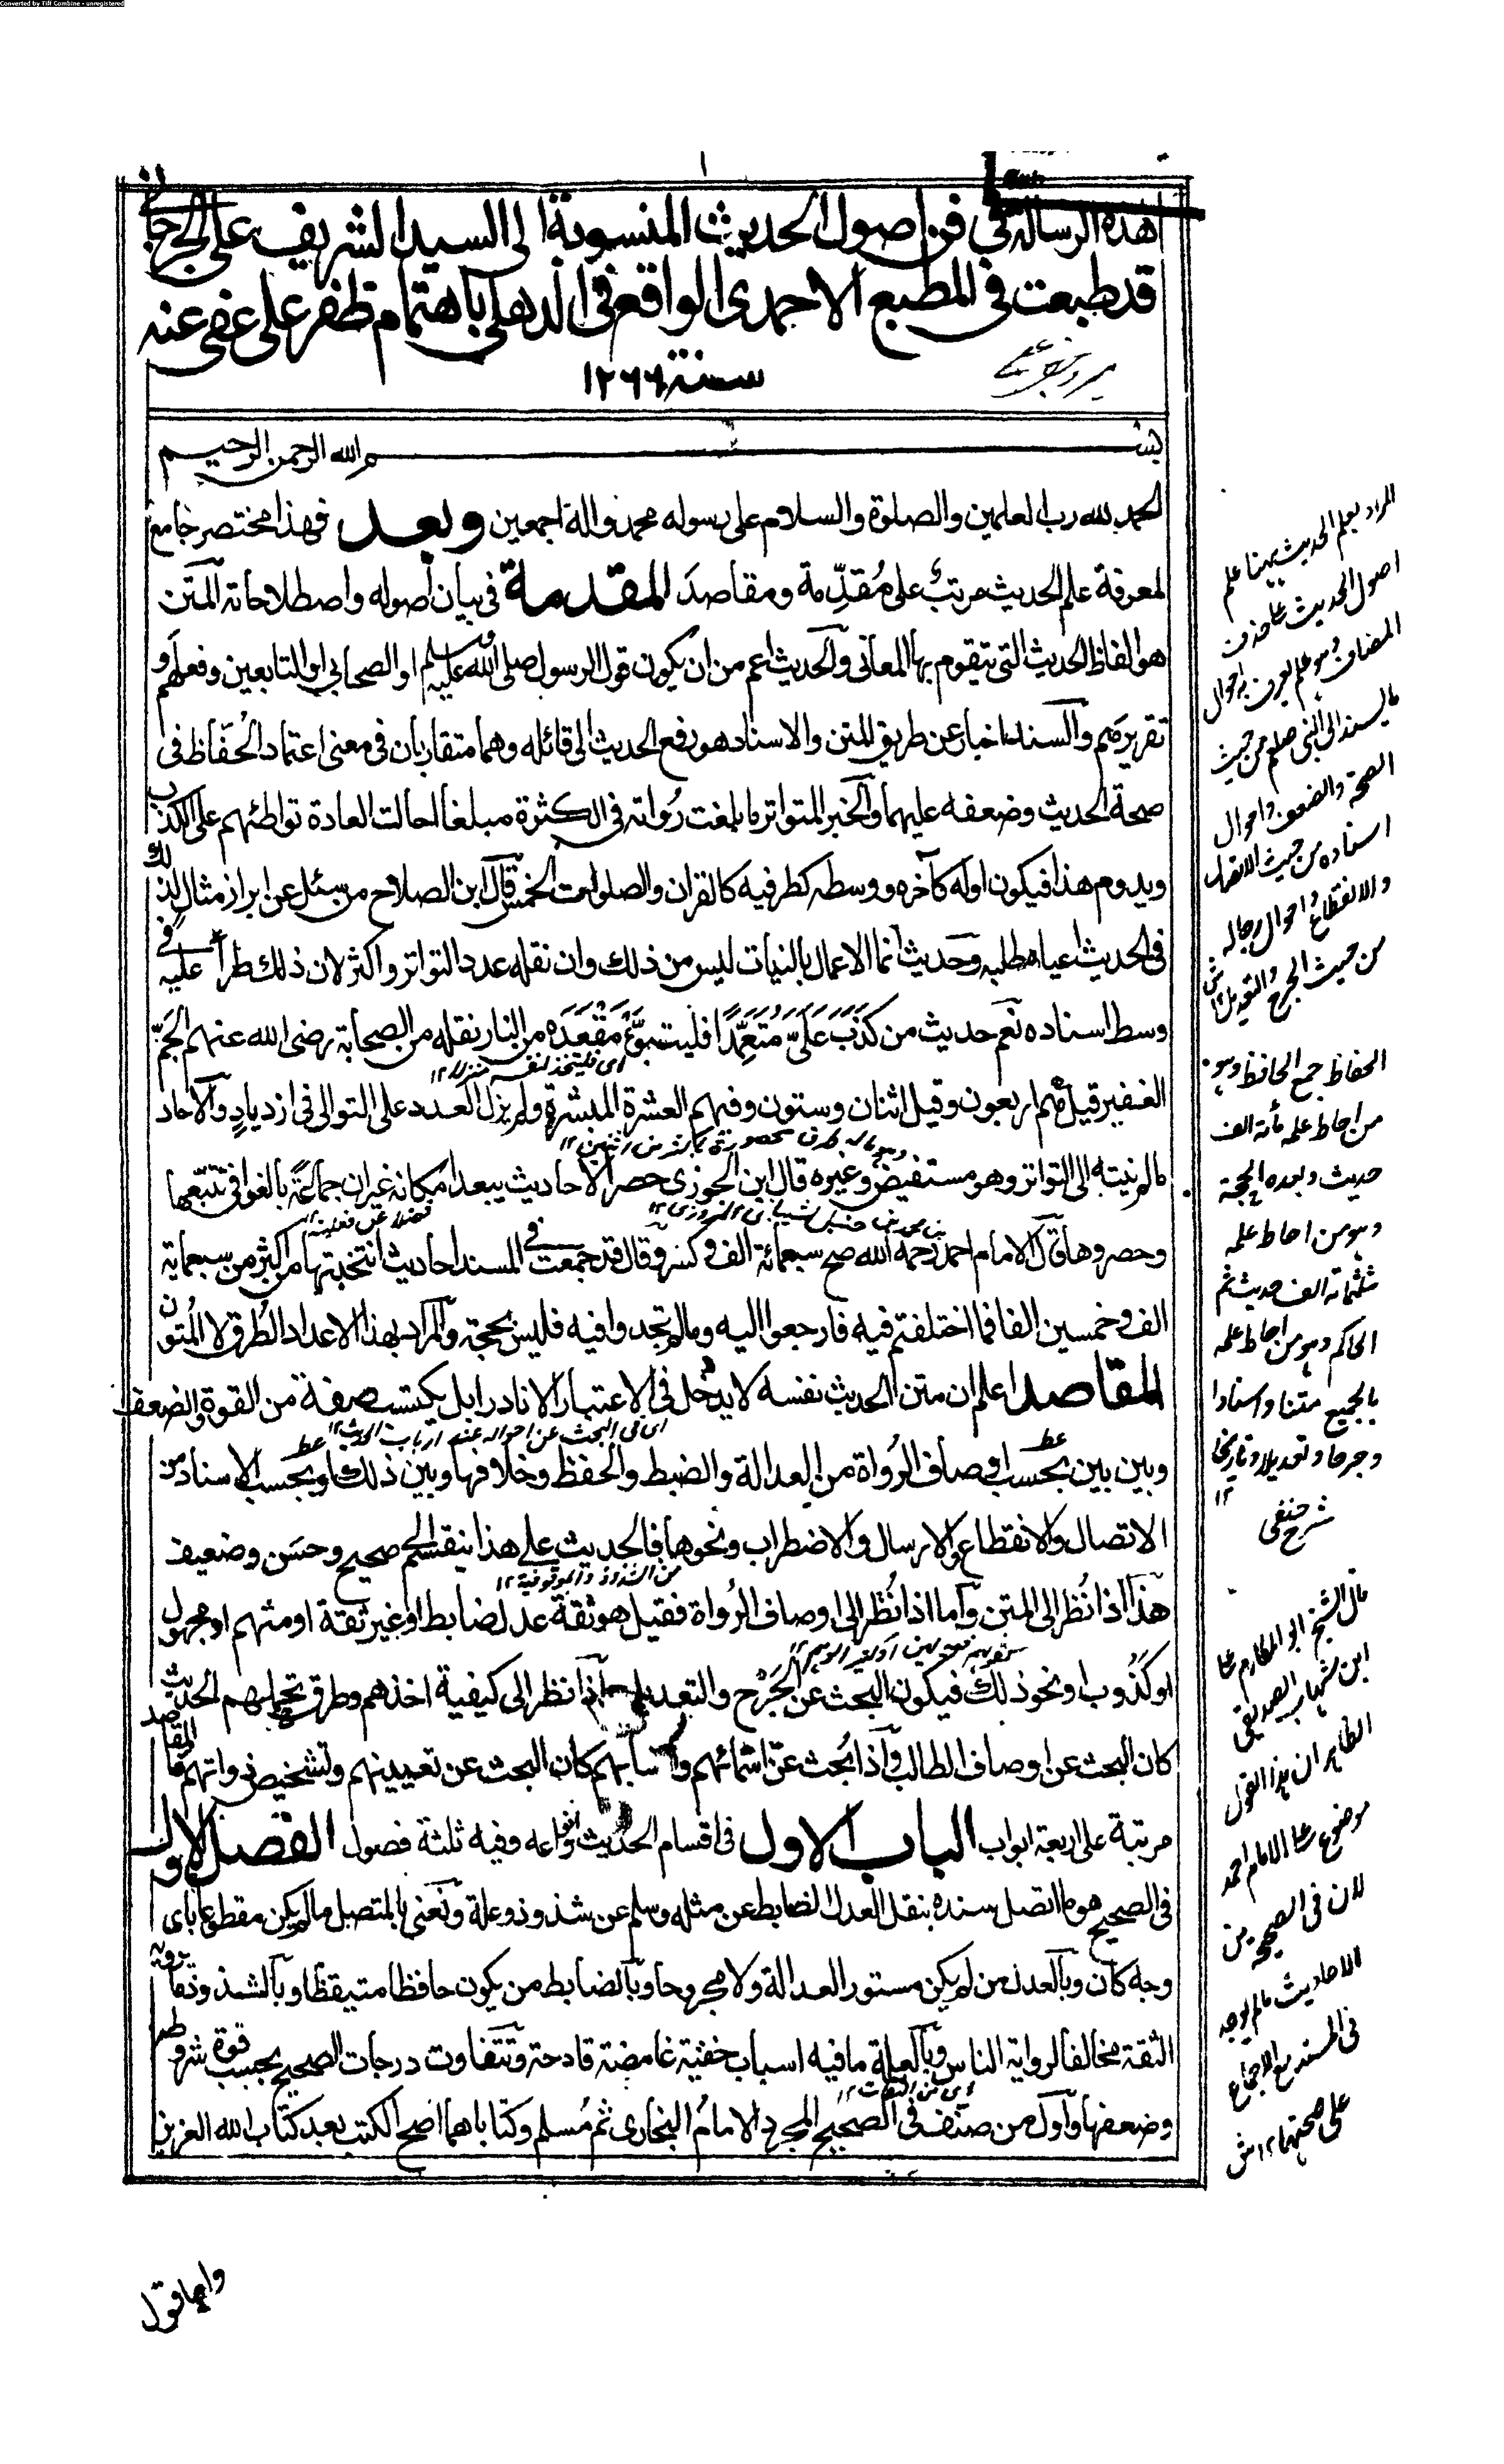 Converted by Tiff Combine - unregistered
١
هذه الرسالة في فن اصول الحديث المنسوبة الى السيد الشريف على الجرجانى
قد طبعت فى المطبع الاحمدى الواقع فى الدهلى باهتمام ظفر على عفى عنه
سنة ١٢٦٦
بسم الله الرحمن الرحيم
الحمد لله رب العلمين والصلوة والسلام على رسوله محمد واله اجمعين وبعد فهذا مختصر جامع
لمعرفة علم الحديث مرتب على مُقدِّمة ومقاصد المقدمة فى بيان اصوله واصطلاحاته المتن
هو الفاظ الحديث التى يتقوم بها المعانى والحديث اعم من ان يكون قول الرسول صلى الله عليه وسلم او الصحابى او التابعين وفعلهم و
تقريرهم والسند اخبار عن طريق المتن والاسناد هو رفع الحديث الى قائله وهما متقاربان فى معنى اعتماد الحُفّاظ فى
صحة الحديث وضعفه عليهما والخبر المتواتر ما بلغت رُواته فى الكثرة مبلغا احالت العادة تواطئهم على الكذب
ويدوم هذا فيكون اوله كآخره ووسطه كطرفيه كالقران والصلوات الخمس قال ابن الصلاح من سئل عن ابراز مثال لذلك
فى الحديث اعياه طلبه وحديث انما الاعمال بالنيات ليس من ذلك وان نقله عدد التواتر واكثر لان ذلك طرأ عليه فى
وسط اسناده نعم حديث من كذب علىّ متعمِّدًا فليتبوّأ مقعده من النار نقله من الصحابة رضى الله عنهم الجَمّ
اى فليتخذ لنفسه منزلا ١٢
الغفير قيل هم اربعون وقيل اثنان وستون وفيهم العشرة المبشرة ولم يزل العدد على التوالى فى ازديادٍ والآحاد
وهو ماله طرق محصورة باكثر من اثنين ١٢
مالم ينته الى التواتر وهو مستفيض وغيره قال ابن الجوزى حصر الاحاديث يبعد امكانه غير ان جماعةً بالغوا فى تتبّعها
وحصروها قال الامام احمد رحمه الله صح سبعمائة الف وكسر وقال قد جمعت فى المسند احاديث انتخبتها من اكثر من سبعماية
الف وخمسين الفا فما اختلفتم فيه فارجعوا اليه ومالم تجدوا فيه فليس بحجة والمراد بهذا الاعداد الطُرق لا المُتون
المقاصد اعلم ان متن الحديث نفسه لا يدخل فى الاعتبار الا نادرا بل يكتسب صفة من القوة والضعف
اى فى البحث عن احواله عند ارباب الحديث ١٢
وبين بين بحسب اوصاف الرُواة من العدالة والضبط والحفظ وخلافها وبين ذلك او بحسب الاسناد من
الاتصال والانقطاع والارسال والاضطراب ونحوها فالحديث على هذا ينقسم الى صحيح وحسن وضعيف
هذا اذا نُظر الى المتن وأما اذا نُظر الى اوصاف الرُواة فقيل هو ثقة عدل ضابط او غير ثقة او متهم او مجهول
او كَذُوب او نحو ذلك فيكون البحث عن الجَرْح والتعديل واذا نظر الى كيفية اخذهم وطرق تحملهم الحديث
كان البحث عن اوصاف الطالب واذا بُحث عن اسمائهم وانسابهم كان البحث عن تعيينهم وتشخيص ذواتهم فالمقاصد
مرتبة على اربعة ابواب الباب الاول فى اقسام الحديث وانواعه وفيه ثلثة فصول الفصل الاول
فى الصحيح هو ما اتصل سنده بنقل العدل الضابط عن مثله وسلم عن شذوذ وعلة ونعنى بالمتصل مالم يكن مقطوعا باى
وجه كان وبالعدل من لم يكن مستور العدالة ولا مجروحا وبالضابط من يكون حافظا متيقظا وبالشذوذ ما يرويه
الثقة مخالفا لرواية الناس وبالعلة ما فيه اسباب خفية غامضة قادحة وتتفاوت درجات الصحيح بحسب قوة شروطه
وضعفها واول من صنف فى الصحيح المجرد الامام البخارى ثم مُسلم وكتاباهما اصح الكتب بعد كتاب الله العزيز
واما قول
المراد بعلم الحديث ههنا علم
اصول الحديث على حذف
المضاف وهو علم يعرف به احوال
ما يسند الى النبى صلعم من حيث
الصحة والضعف واحوال
اسناده من حيث الاتصال
والانقطاع واحوال رجاله
من حيث الجرح والتعديل ١٢ ش
الحفاظ جمع الحافظ وهو
من احاط علمه مأته الف
حديث وبعده الحجة
وهو من احاط علمه
ثلثمائة الف حديث ثم
الحاكم وهو من احاط علمه
بالجميع متنا واسنادا
وجرحا وتعديلا وتاريخا
١٢
شرح حنفى
قال الشيخ ابو المكارم على
ابن شهاب الصديقى
الظاهر ان هذا القول
موضوع على الامام احمد
لان فى الصحيحين
الاحاديث مالم يوجد
فى المسند مع الاجماع
على صحتها ١٢ ش